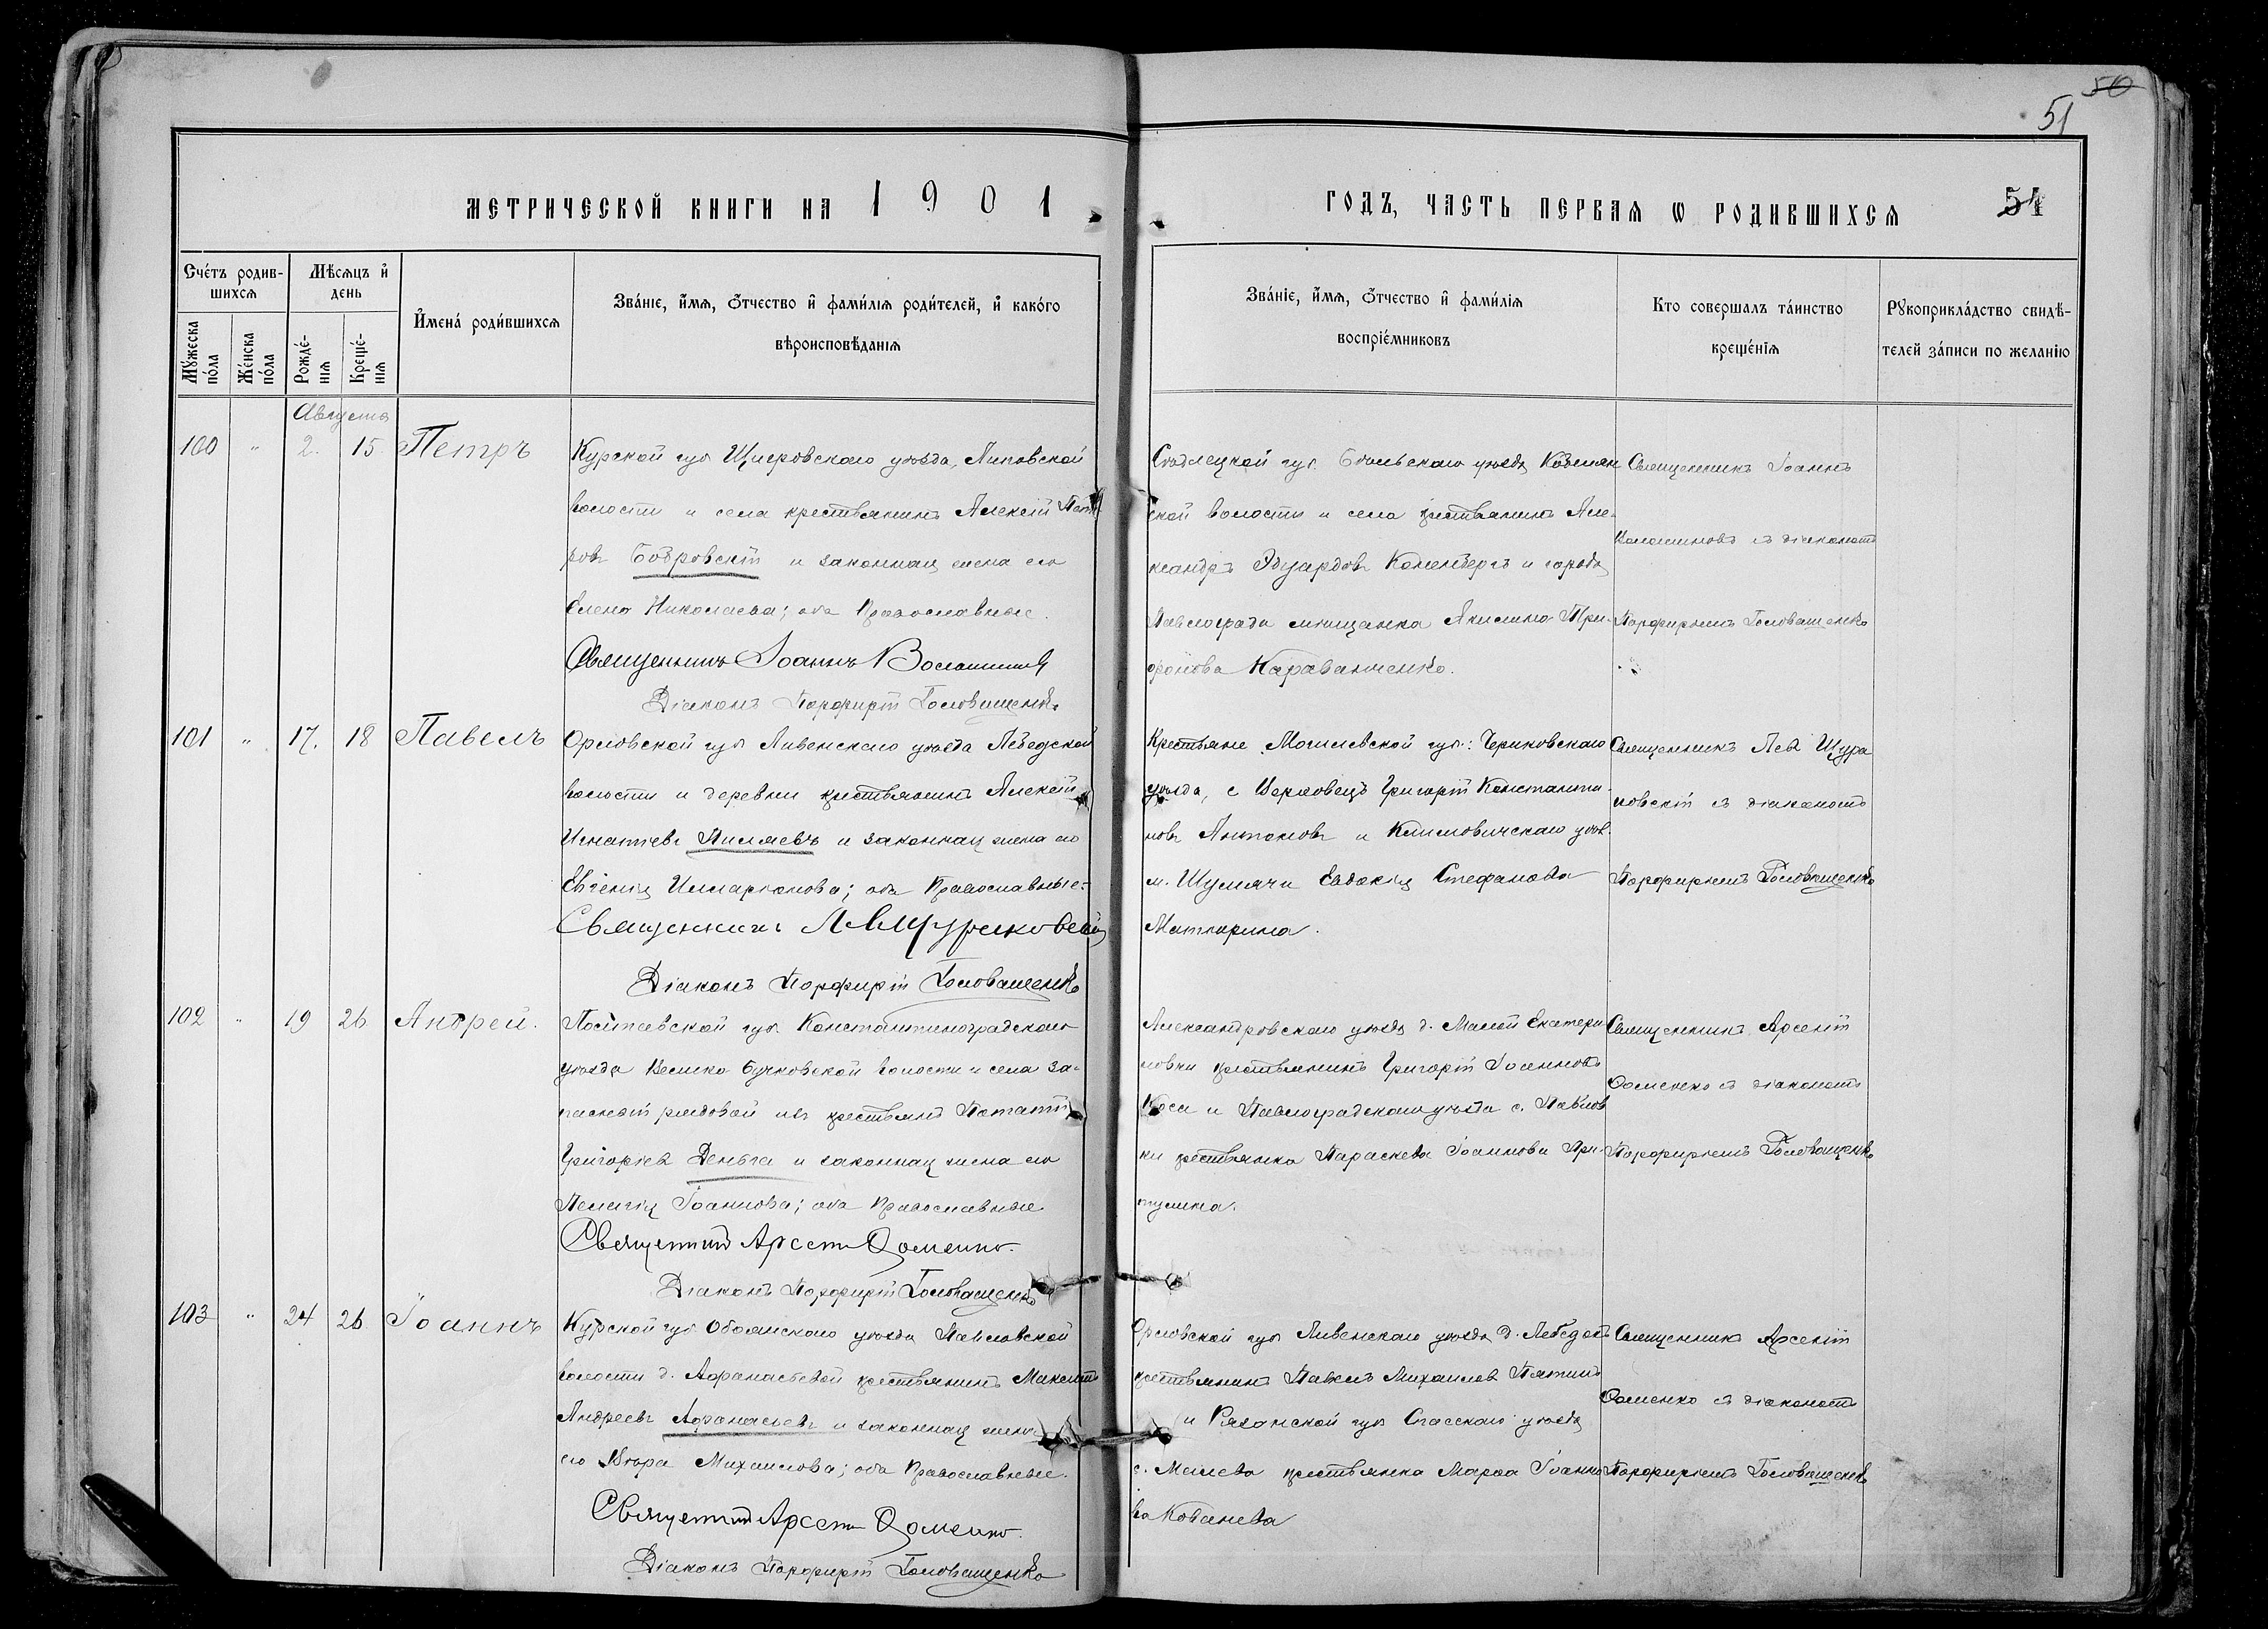 50
51
МЕТРИЧЕСКОЙ КНИГИ НА 1901
ГОДЪ, ЧАСТЬ ПЕРВАЯ Ѡ РОДИВШИХСЯ
51
Счетъ родив-
шихся
Мѣсяцъ и
день
Имена родившихся
Званіе, имя, отчество и фамилія родителей, и какого
вѣроисповѣданія
Мужеска
пола
Женска
пола
Рожде-
нія
Креще-
нія
Званіе, имя, отчество и фамилія
воспріемниковъ
Кто совершалъ таинство
крещенія
Рукоприкладство свидѣ-
телей записи по желанію
Августа
100 " 2. 15 Петръ
Курской губ Щигровскаго уѣзда, Липовской
волости и села крестьянинъ Алексій Пет
ровъ Бобровскій и законная жена его
Елена Николаева; оба Православные.
Священникъ Іоаннъ
Діаконъ Порфирій Головащенко
губ. уѣзда
ской волости и села крестьянинъ Але-
ксандръ Эдуардовъ и города
Павлограда мѣщанка Акилина Три-
фонова Караванченко.
Священникъ Іоаннъ
съ діакономъ
Порфиріемъ Головащенко
101 " 17. 18 Павелъ
Орловской губ Ливенскаго уѣзда Лебедской
волости и деревни крестьянинъ Алексій
Игнатіевъ и законная жена его
Евгенія Илларіонова; оба Православные.
Священникъ Л Щурановскій
Діаконъ Порфирій Головащенко
Крестьяне Могилевской губ.: Чериковскаго
уѣзда, с Григорій Константи-
новъ Антоновъ и Климовичскаго уѣз.
м. Шумячи Евдокія Стефанова
Священникъ Левъ Щура
новскій съ діакономъ
Порфиріемъ Головащенко
102 " 19 26 Андрей.
Полтавской губ. Константиноградскаго
уѣзда Велико Бучковской волости и села за-
пасной рядовой изъ крестьянъ Потапій
Григоріевъ Деньга и законная жена его
Пелагія Іоаннова; оба Православные
Священникъ Арсеній Ѳоменко.
Діаконъ Порфирій Головащенко
Александровскаго уѣзда д. Малой Екатери
новки крестьянинъ Григорій Іоанновъ
Коса и Павлоградскаго уѣзда с. Павлов
ки крестьянка Параскева Іоаннова При-
тулина.
Священникъ Арсеній
Ѳоменко съ діакономъ
Порфиріемъ Головащенко
103 " 24 26 Іоаннъ
Курской губ Обоянскаго уѣзда Павловской
волости д. Афанасьевой крестьянинъ Максимъ
Андреевъ Афанасьевъ и законная жена
его Вѣра Михаилова; оба Православные.
Священникъ Арсеній Ѳоменко.
Діаконъ Порфирій Головащенко
Орловской губ Ливенскаго уѣзда д.
крестьянинъ Павелъ Михаиловъ
и Рязанской губ Спасскаго уѣзда
с. крестьянка Марѳа Іоанно
ва
Священникъ Арсеній
Ѳоменко съ діакономъ
Порфиріемъ Головащенко